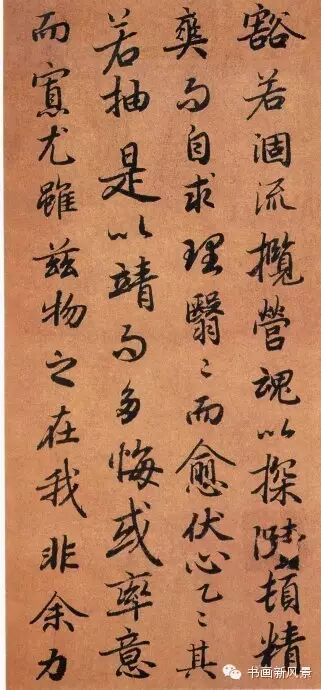 豁若涸流攬營魂以探賾頓精
爽而自求理翳〻而愈伏心乙〻其
若抽是以靖而多悔或率意
而寡尤雖茲物之在我非余力
书画新风景